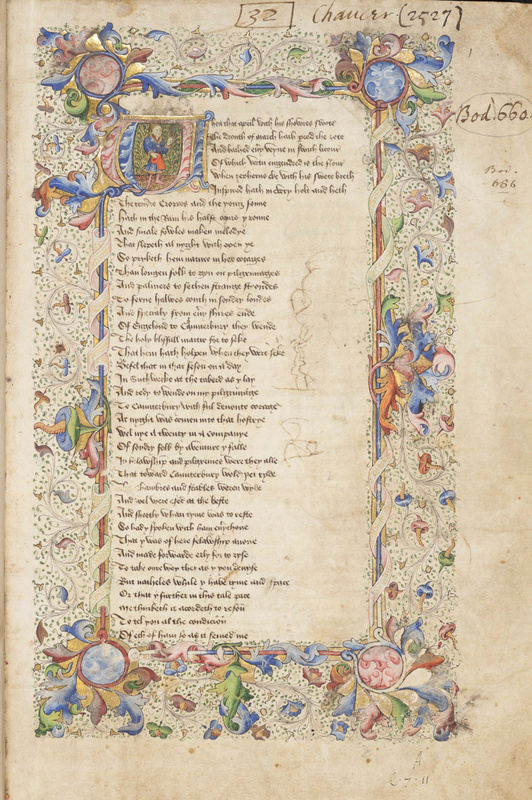 32 Chaucer (2527)
Bod. 660.
Bod. 686
When that april with his shoures swote
The drouth of march hath preced the rote
And bathed euery veyne in swich licour
Of which vertu engendred is the flour
When zepherus eke with his swete breth
Inspired hath in every holt and heth
The tendre Croppes and the yong sonne
Hath in the Ram his halfe cours y ronne
And smale fowles maken melodye
That slepeth al nyght with open ye
So priketh hem nature in her corages
Than longen folk to gon on pilgrimages
And palmers to sechen straunge strondes
To ferne halwes couth in sondry londes
And specialy from euery shires ende
Of Engelond to Caunterbury they wende
The holy blissful martir for to seke
That hem hath holpen when they were seke
Befel that in that seson on a day
In Suthwerke at the tabard as y lay
And redy to wende on my pilgrimage
To Caunterbury with ful deuoute corage
At nyght was comen into that hostrye
Wel nye a twenty in a companye
Of sondry folk by auenture y falle
In felawship and pilgrimes were they alle
That toward Caunterbury wold yei ryde
Chambres and stables weren wyde
And wel were esed at the beste
And shortly whan tyme was to reste
So had y spoken with hem euerychone
That y was of here felawship anone
And made forwarde erly for to ryse
To take oure wey ther as y you deuyse
But natheles while y have tyme and space
Or that y further in this tale pace
Me thinketh it acordeth to resoun
To tel you al the condicioun
Of ech of ham so as it semed me
A
C. 7. 11